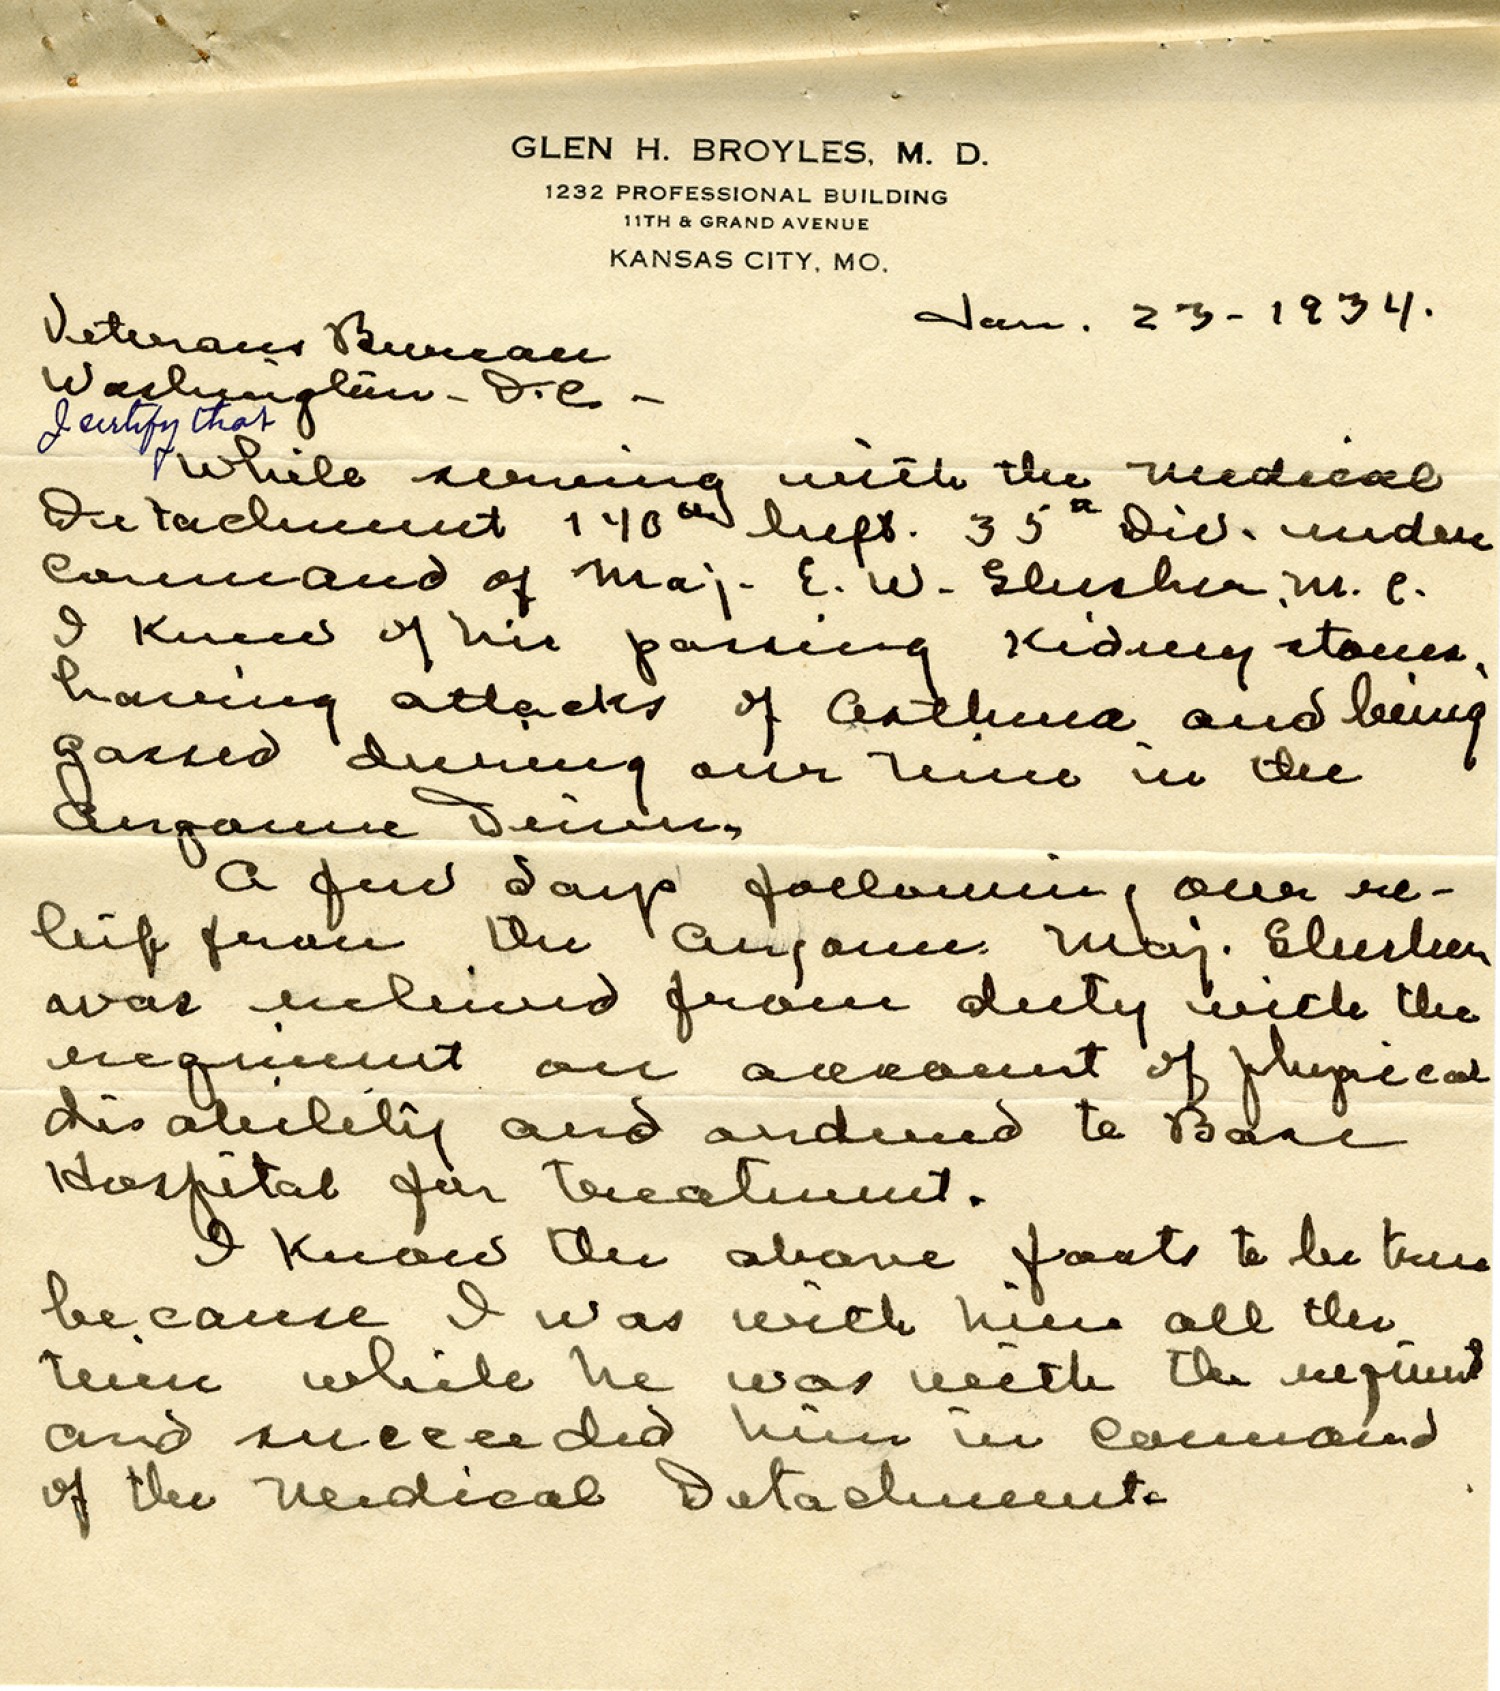 GLEN H. BROYLES, M. D.
1232 PROFESSIONAL BUILDING
11TH & GRAND AVENUE
KANSAS CITY, MO.
Jan. 23-1934.
Veterans Bureau
Washington - D.C. -
I certify that
While serving with the Medical
Detachment 140th Inft. 35th Div. under
command of Maj. E. W. Slusher, M. C.
I knew of his passing kidney stones,
having attacks of Asthma and being
gassed during our time in the
Argonne Drive.
A few days following our re-
lief from the Argonne Maj. Slusher
was relieved from duty with the
regiment on account of physical
disability and ordered to Base
Hospital for treatment.
I know the above facts to be true
because I was with him all the
time while he was with the regiment
and succeeded him in command
of the Medical Detachment.